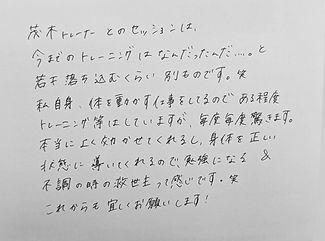 茂木トレーナーとのセッションは、
今までのトレーニングはなんだったんだ....。と
若干落ち込むくらい別ものです。笑
私自身、体を動かす仕事をしてるのである程度
トレーニング等はしていますが、毎度毎度驚きます。
本当に上く効かせてくれるし、身体を正しい
状態に導いてくれるので勉強になる &
不調の時の救世主って感じです。笑
これからも宜しくお願いします!